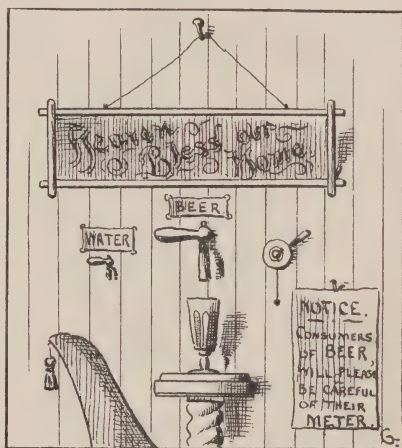 Heaven
Bless our
Home
BEER
WATER
NOTICE.
CONSUMERS
OF BEER,
WILL PLEASE
BE CAREFUL
OF THEIR
METER.
G.